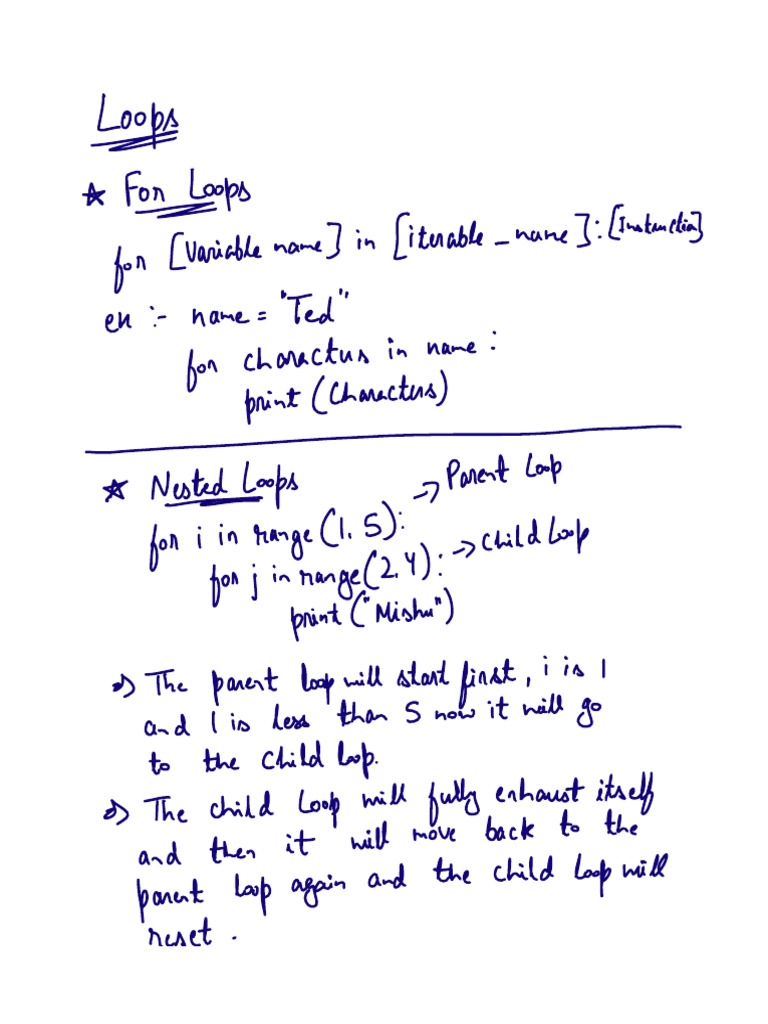 Loops
* For Loops
for [Variable name] in [iterable_name]:[Instruction]
ex :- name = "Ted"
for characters in name :
print (Characters)
* Nested Loops
for i in range (1, 5): → Parent Loop
for j in range(2,4): → Child Loop
print ("Mishu")
→ The parent loop will start first, i is 1
and 1 is less than 5 now it will go
to the child loop.
→ The child loop will fully exhaust itself
and then it will move back to the
parent loop again and the child loop will
reset .